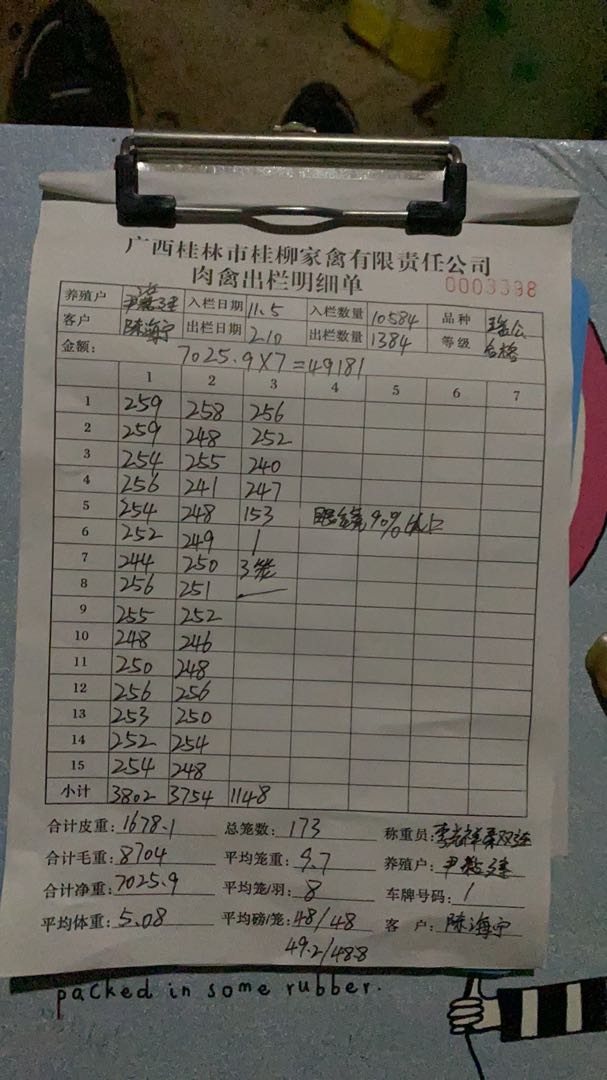 广西桂林市桂柳家禽有限责任公司
肉禽出栏明细单 0003398
养殖户 入栏日期 11.5 入栏数量 10584 品种 瑶公
客户 陈海宁 出栏日期 2.10 出栏数量 1384 等级 合格
金额: 7025.9×7=49181
1 2 3 4 5 6 7
1 259 258 256
2 259 248 252
3 254 255 240
4 256 241 247
5 254 248 153 90%以上
6 252 249 1
7 244 250 3笼
8 256 251
9 255 252
10 248 246
11 250 248
12 256 256
13 253 250
14 252 254
15 254 248
小计 3802 3754 1148
合计皮重:1678.1 总笼数:173 称重员:
合计毛重:8704 平均笼重:9.7 养殖户:尹
合计净重:7025.9 平均笼/羽:8 车牌号码:1
平均体重:5.08 平均磅/笼:48/48 客 户:陈海宁
49.2/48.8
packed in some rubber.